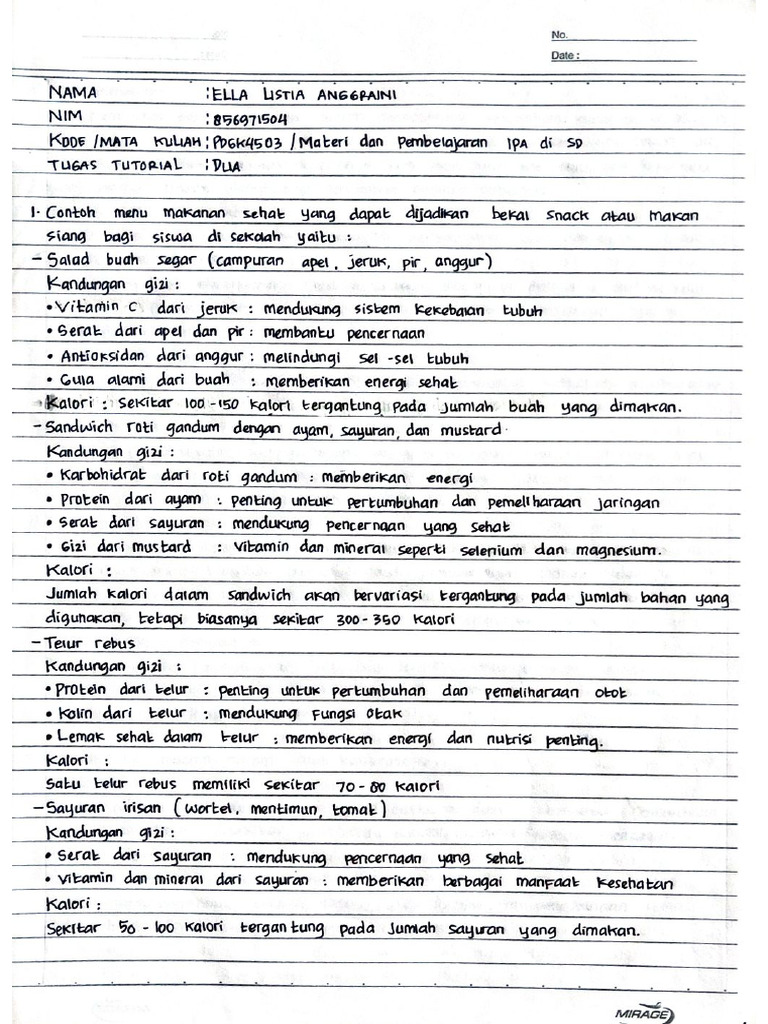 No.
Date :
NAMA : ELLA LISTIA ANGGRAINI
NIM : 856971504
KODE /MATA KULIAH : PDGK4503 / Materi dan Pembelajaran IPA di SD
TUGAS TUTORIAL : DUA
1. Contoh menu makanan sehat yang dapat dijadikan bekal snack atau makan
siang bagi siswa di sekolah yaitu :
- Salad buah segar (campuran apel, jeruk, pir, anggur)
Kandungan gizi :
• Vitamin C dari jeruk : mendukung sistem kekebalan tubuh
• Serat dari apel dan pir : membantu pencernaan
• Antioksidan dari anggur : melindungi sel-sel tubuh
• Gula alami dari buah : memberikan energi sehat
Kalori : Sekitar 100-150 kalori tergantung pada jumlah buah yang dimakan.
- Sandwich roti gandum dengan ayam, sayuran, dan mustard.
Kandungan gizi :
• Karbohidrat dari roti gandum : memberikan energi
• Protein dari ayam : penting untuk pertumbuhan dan pemeliharaan jaringan
• Serat dari sayuran : mendukung pencernaan yang sehat
• Gizi dari mustard : Vitamin dan mineral seperti selenium dan magnesium.
Kalori :
Jumlah kalori dalam sandwich akan bervariasi tergantung pada jumlah bahan yang
digunakan, tetapi biasanya sekitar 300-350 kalori
- Telur rebus
Kandungan gizi :
• Protein dari telur : penting untuk pertumbuhan dan pemeliharaan otot
• Kolin dari telur : mendukung fungsi otak
• Lemak sehat dalam telur : memberikan energi dan nutrisi penting.
Kalori :
Satu telur rebus memiliki sekitar 70-80 kalori
- Sayuran irisan (wortel, mentimun, tomat)
Kandungan gizi :
• Serat dari sayuran : mendukung pencernaan yang sehat
• Vitamin dan mineral dari sayuran : memberikan berbagai manfaat kesehatan
Kalori :
Sekitar 50-100 kalori tergantung pada jumlah sayuran yang dimakan.
MIRAGE